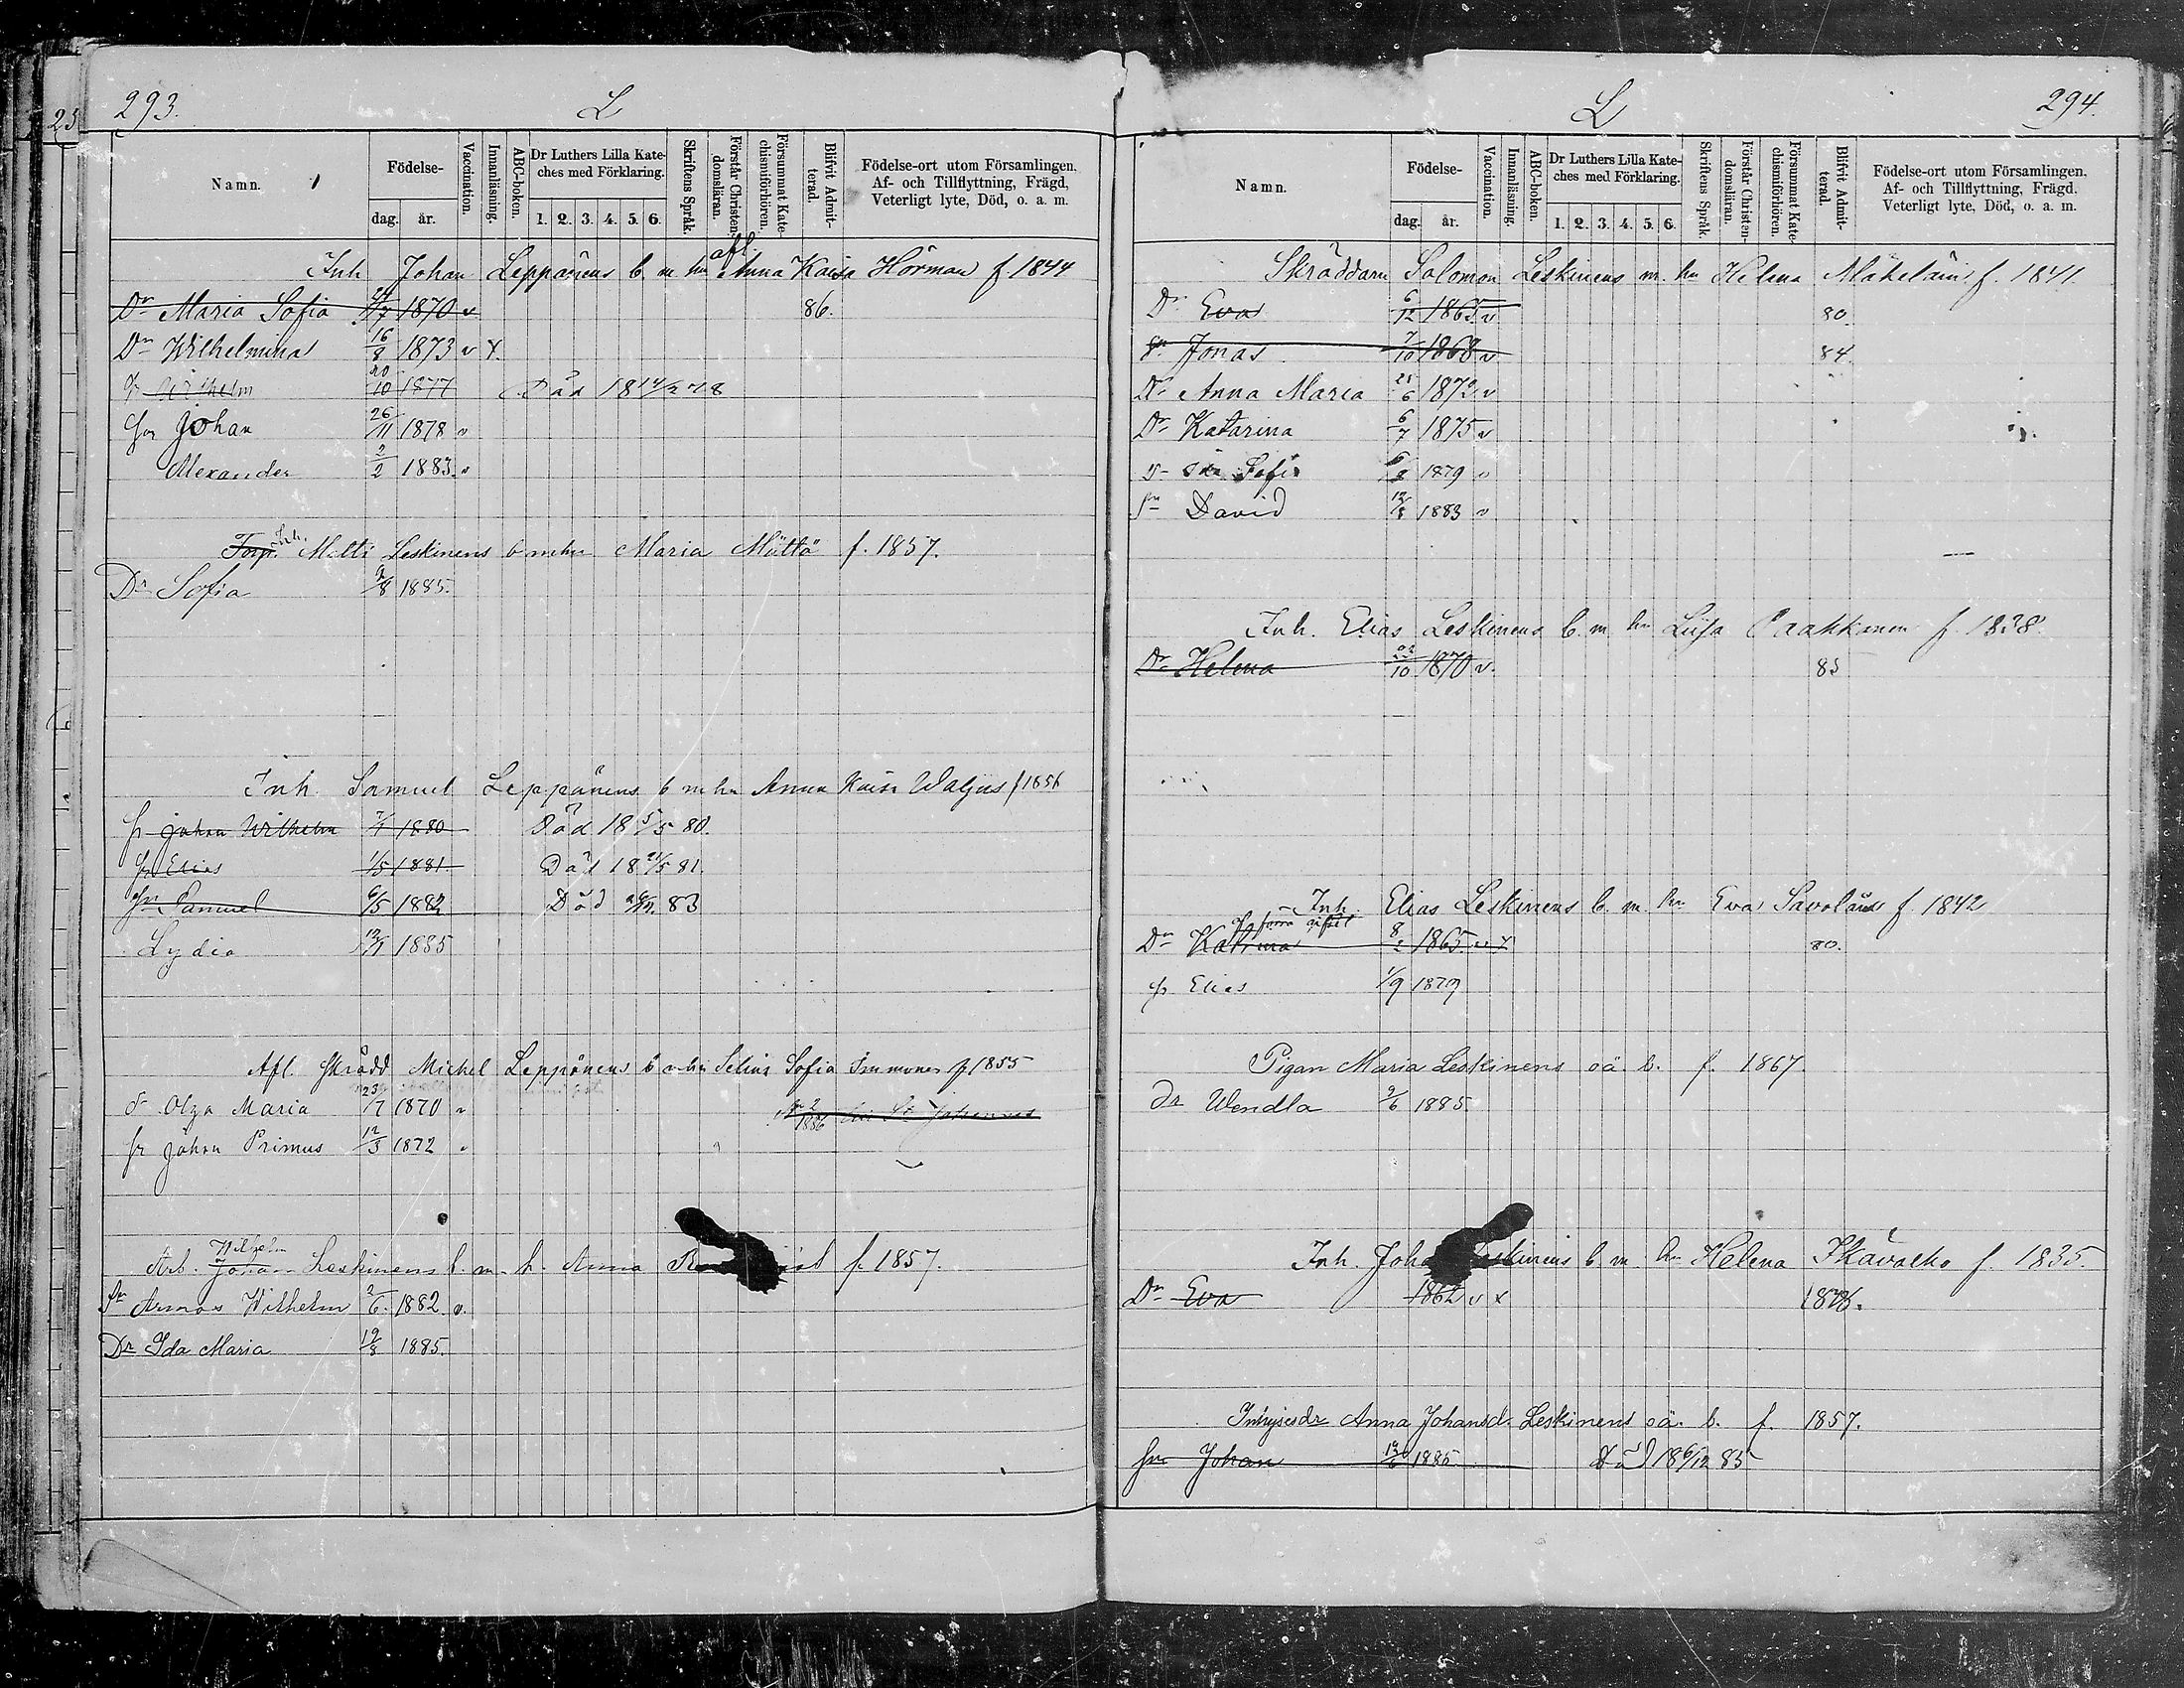 293.
L
Namn.
Födelse-
dag.
år.
Vaccination.
Innanläsning.
ABC-boken.
Dr Luthers Lilla Kate-
ches med Förklaring.
1. 2. 3. 4. 5. 6.
Skriftens Språk.
Förstår Christen-
domsläran.
Försummat Kate-
chismiförhören.
Blifvit Admit-
terad.
Födelse-ort utom Församlingen.
Af- och Tillflyttning, Frägd,
Veterligt lyte, Död, o. a. m.
afl.
Inh Johan Leppänens b m hu Anna Kaisa Hörman f 1844
Dr Maria Sofia 1870 v 86.
Dr Wilhelmina 16/8 1873 v x
Wilhelm 20/10 1877 Död 18 14/2 78
Sn Johan 26/11 1878 v
Alexander 2/2 1883 v
Inh.
Torp. Matti Leskinens b m hu Maria Mättö f. 1857.
Dr Sofia 9/8 1885.
Inh. Samuel Leppänens b m hu Anna Kaisa Waljus f 1856
Sn Johan Wilhelm 1880 Död 18 5/5 80.
Sn Elias 1/5 1881 Död 18 21/5 81.
Sn Samuel 6/5 1882 Död 83
Lydia 12/1 1885
Afl. Skrädd Michel Leppänens b m hu Selina Sofia Immonen f 1855
Dr Olga Maria 23/7 1870 v 1886 St Johannes
Sn Johan Primus 12/3 1872 v
Wilhelm
Arb. Johan Leskinens b. m. h. Anna f. 1857.
Sn Armas Wilhelm 2/6 1882 v.
Dr Ida Maria 19/8 1885.
L
294.
Namn.
Födelse-
dag.
år.
Vaccination.
Innanläsning.
ABC-boken.
Dr Luthers Lilla Kate-
ches med Förklaring.
1. 2. 3. 4. 5. 6.
Skriftens Språk.
Förstår Christen-
domsläran.
Försummat Kate-
chismiförhören.
Blifvit Admit-
terad.
Födelse-ort utom Församlingen.
Af- och Tillflyttning, Frägd.
Veterligt lyte, Död, o. a. m.
Skräddarn Salomon Leskinens m. hu Helena Mäkeläin f. 1841.
Dr Eva 6/12 1865 v 80.
Sn Jonas 7/10 1868 v 84.
Dr Anna Maria 25/6 1872 v
Dr Katarina 6/7 1875 v
Ida Sofia 1879 v
Sn David 12/8 1883 v
Inh. Elias Leskinens b. m hu Liisa Paakkunen f. 1838.
Dr Helena 23/10 1870 v. 85
Inh. Elias Leskinens b. m. hu Eva Savolains f. 1842
förra giftet
Dr Katrina 8/2 1865 v x 80.
Sn Elias 1/9 1879
Pigan Maria Leskinens oä. b. f. 1867
Dr Wendla 9/6 1885
Inh. Johan Leskinens b m hu Helena Skävalko f. 1835.
Dr Eva 1862 v x 1878.
Inhysesdr Anna Johansd. Leskinens oä. b. f. 1857.
Sn Johan 1885 Död 18 6/12 85